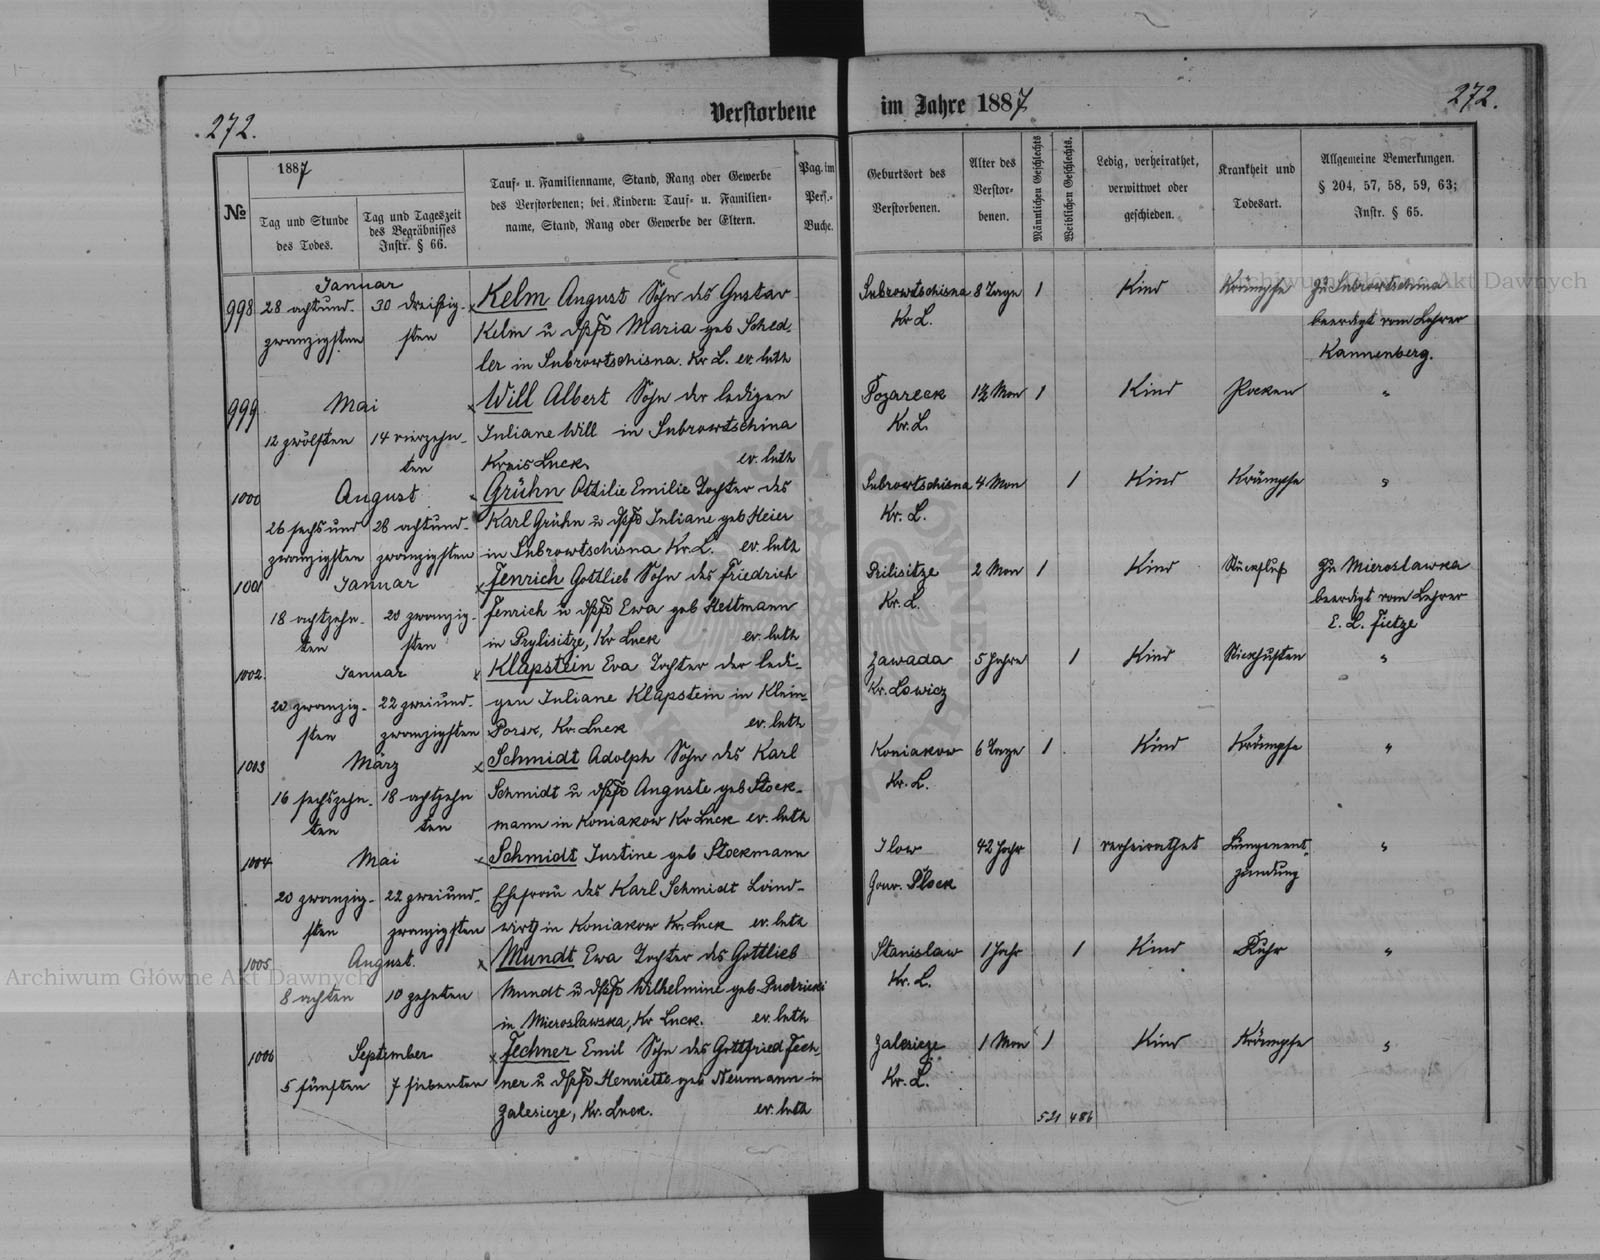 272.
Verstorbene im Jahre 1887
272.
1887
№
Tag und Stunde
des Todes.
Tag und Tageszeit
des Begräbnisses
Instr. § 66.
Tauf- u. Familienname, Stand, Rang oder Gewerbe
des Verstorbenen; bei Kindern: Tauf- u. Familien-
name, Stand, Rang oder Gewerbe der Eltern.
Pag. im
Pers.-
Buche.
Geburtsort des
Verstorbenen.
Alter des
Verstor-
benen.
Männlichen Geschlechts
Weiblichen Geschlechts.
Ledig, verheirathet,
verwittwet oder
geschieden.
Krankheit und
Todesart.
Allgemeine Bemerkungen.
§ 204, 57, 58, 59, 63;
Instr. § 65.
998
Januar
28 achtund-
zwanzigsten
30 dreißig-
sten
Kelm August Sohn des Gustav
Kelm u Maria geb Sched-
ler in Subrowtschisna. Kr L. ev. luth
Subrowtschisna
Kr L.
8 Tage
1
Kind
Krämpfe
Zu Subrowtschina
beerdigt vom Lehrer
Kannenberg.
999
Mai
12 zwölften
14 vierzehn-
ten
Will Albert Sohn der ledigen
Juliane Will in Subrowtschina
Kreis Luck. ev. luth
Pozareck
Kr. L.
1½ Mon
1
Kind
Pocken
"
1000
August
26 sechsund
zwanzigsten
28 achtund-
zwanzigsten
Grühn Ottilie Emilie Tochter des
Karl Grühn u Juliane geb Heier
in Subrowtschisna Kr. L. ev. luth
Subrowtschisna
Kr. L.
4 Mon
1
Kind
Krämpfe
"
1001
Januar
18 achtzehn-
ten
20 zwanzig-
sten
Fenrich Gottlieb Sohn des Friedrich
Fenrich u Ewa geb Hettmann
in Prylisitze, Kr Luck ev. luth
Prilisitze
Kr. L.
2 Mon
1
Kind
Stickfluß
Zu Mieroslawka
beerdigt vom Lehrer
E. L. Fietze
1002
Januar
20 zwanzig-
sten
22 zweiund-
zwanzigsten
Klapstein Eva Tochter der ledi-
gen Juliane Klapstein in Klein-
Porsk, Kr. Luck ev. luth
Zawada
Kr. Lowicz
5 Jahre
1
Kind
Stickhusten
"
1003
März
16 sechszehn-
ten
18 achtzehn
ten
Schmidt Adolph Sohn des Karl
Schmidt u Auguste geb Stock-
mann in Koniakow Kr Luck ev. luth
Koniakow
Kr. L.
6 Tage
1
Kind
Krämpfe
"
1004
Mai
20 zwanzig-
sten
22 zweiund-
zwanzigsten
Schmidt Justine geb Stockmann
Ehefrau des Karl Schmidt Land-
wirth in Koniakow Kr. Luck ev. luth
Ilow
Gouv. Plock
42 Jahr
1
verheirathet
Lungenent-
zündung
"
1005
August.
8 achten
10 zehnten
Mundt Ewa Tochter des Gottlieb
Mundt u Wilhelmine geb
in Mieroslawska, Kr Luck. ev. luth
Stanislaw
Kr. L.
1 Jahr
1
Kind
Ruhr
"
1006
September
5 fünften
7 siebenten
Fechner Emil Sohn des Gottfried Fech-
ner u Henriette geb Neumann in
Zalesieze, Kr. Luck. ev. luth
Zalesieze
Kr. L.
1 Mon
1
Kind
Krämpfe
"
521 486
Archiwum Główne Akt Dawnych
Archiwum Główne Akt Dawnych